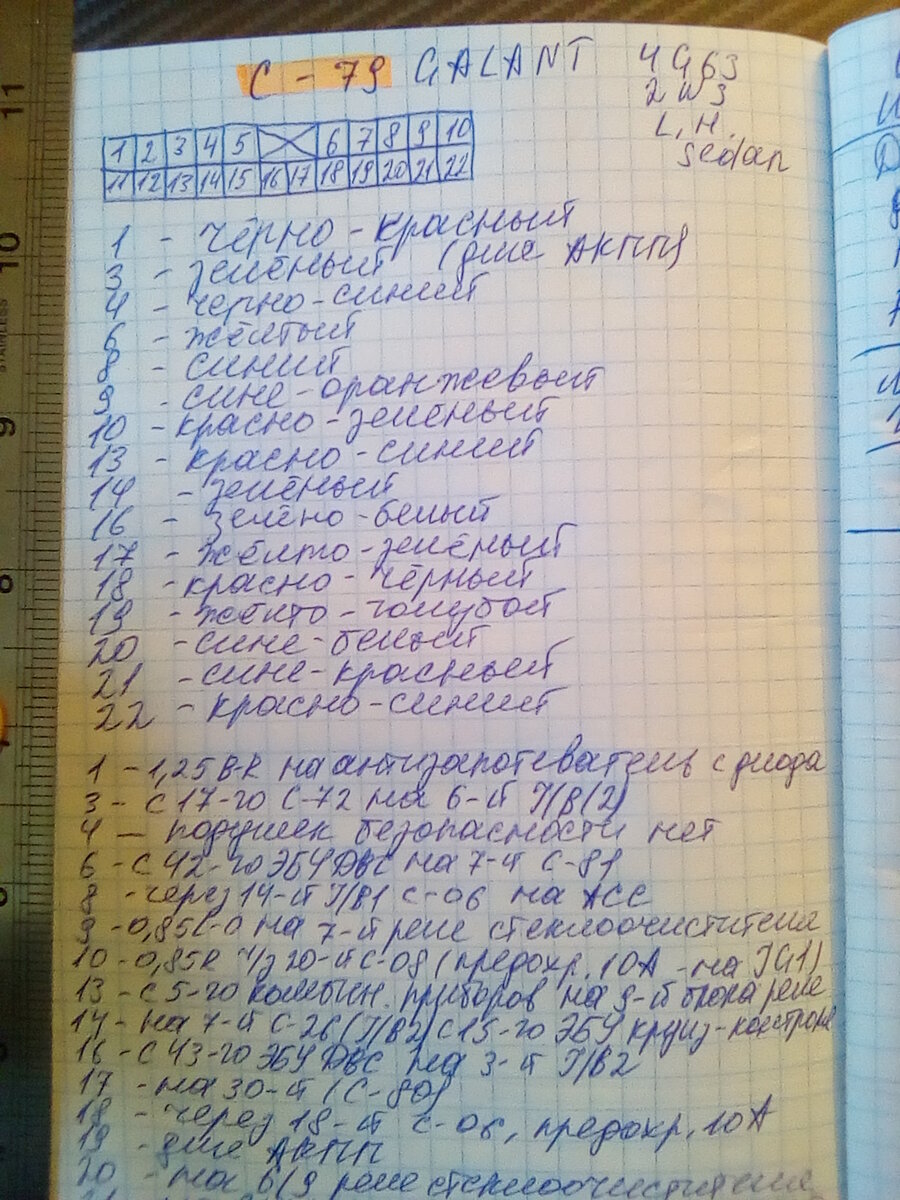 С - 79 GALANT 4G63
2W3
L.H.
sedan
1 2 3 4 5 6 7 8 9 10
11 12 13 14 15 16 17 18 19 20 21 22
1 - чёрно-красный
3 - зелёный (для АКПП)
4 - черно-синий
6 - жёлтый
8 - синий
9 - сине-оранжевый
10 - красно-зелёный
13 - красно-синий
14 - зелёный
16 - зелёно-белый
17 - жёлто-зелёный
18 - красно-чёрный
19 - жёлто-голубой
20 - сине-белый
21 - сине-красный
22 - красно-синий
1 - 1,25 B-R на антизапотеватель с диода
3 - с 17-го С-72 на 6-й J/B(2)
4 - подушек безопасности нет
6 - с 42-го ЭБУ ДВС на 7-й С-81
8 - через 14-й J/B1 С-06 на АСС
9 - 0,85L-O на 7-й реле стеклоочистителя
10 - 0,85R ч/з 20-й С-08 (предохр. 10А - на IG1)
13 - с 5-го комбин. приборов на 9-й блока реле
14 - на 7-й С-26 (J/B2) с 15-го ЭБУ круиз-контроля
16 - с 43-го ЭБУ ДВС на 3-й J/B2
17 - на 30-й (С-80)
18 - через 18-й С-06, предохр. 10А
19 - для АКПП
20 - на 6(9 реле стеклоочистителя
11
10
9
8
STAINLESS